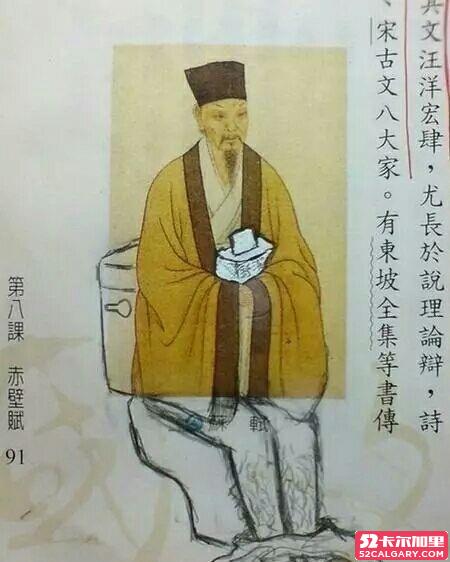 其文汪洋宏肆，尤長於說理論辯，詩
、宋古文八大家。有東坡全集等書傳
蘇軾
第八課 赤壁賦
91
52卡尔加里
52CALGARY.COM